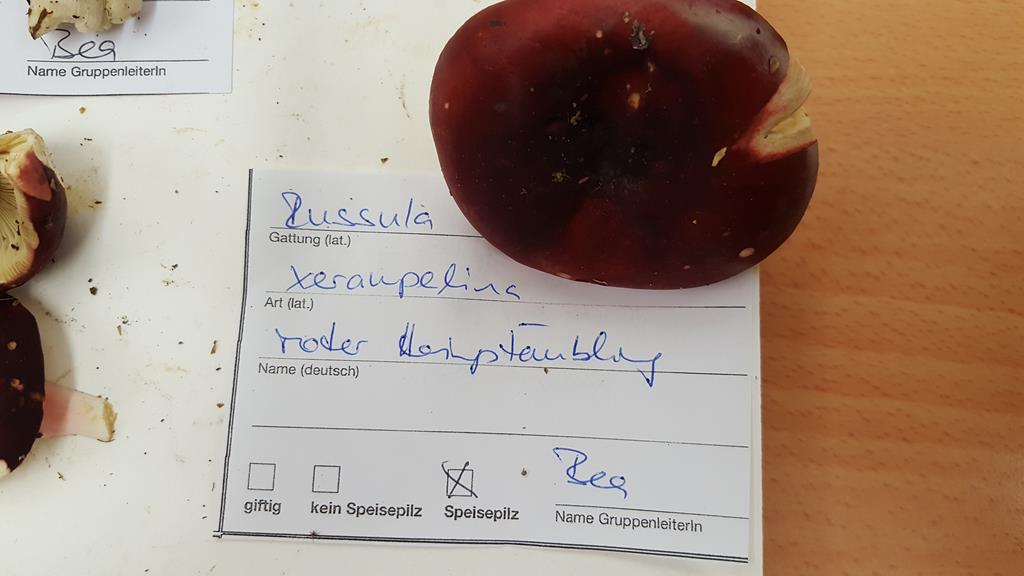 Bea
Name GruppenleiterIn
Russula
Gattung (lat.)
xerampelina
Art (lat.)
roter Heringstäubling
Name (deutsch)
giftig
kein Speisepilz
Speisepilz
Bea
Name GruppenleiterIn